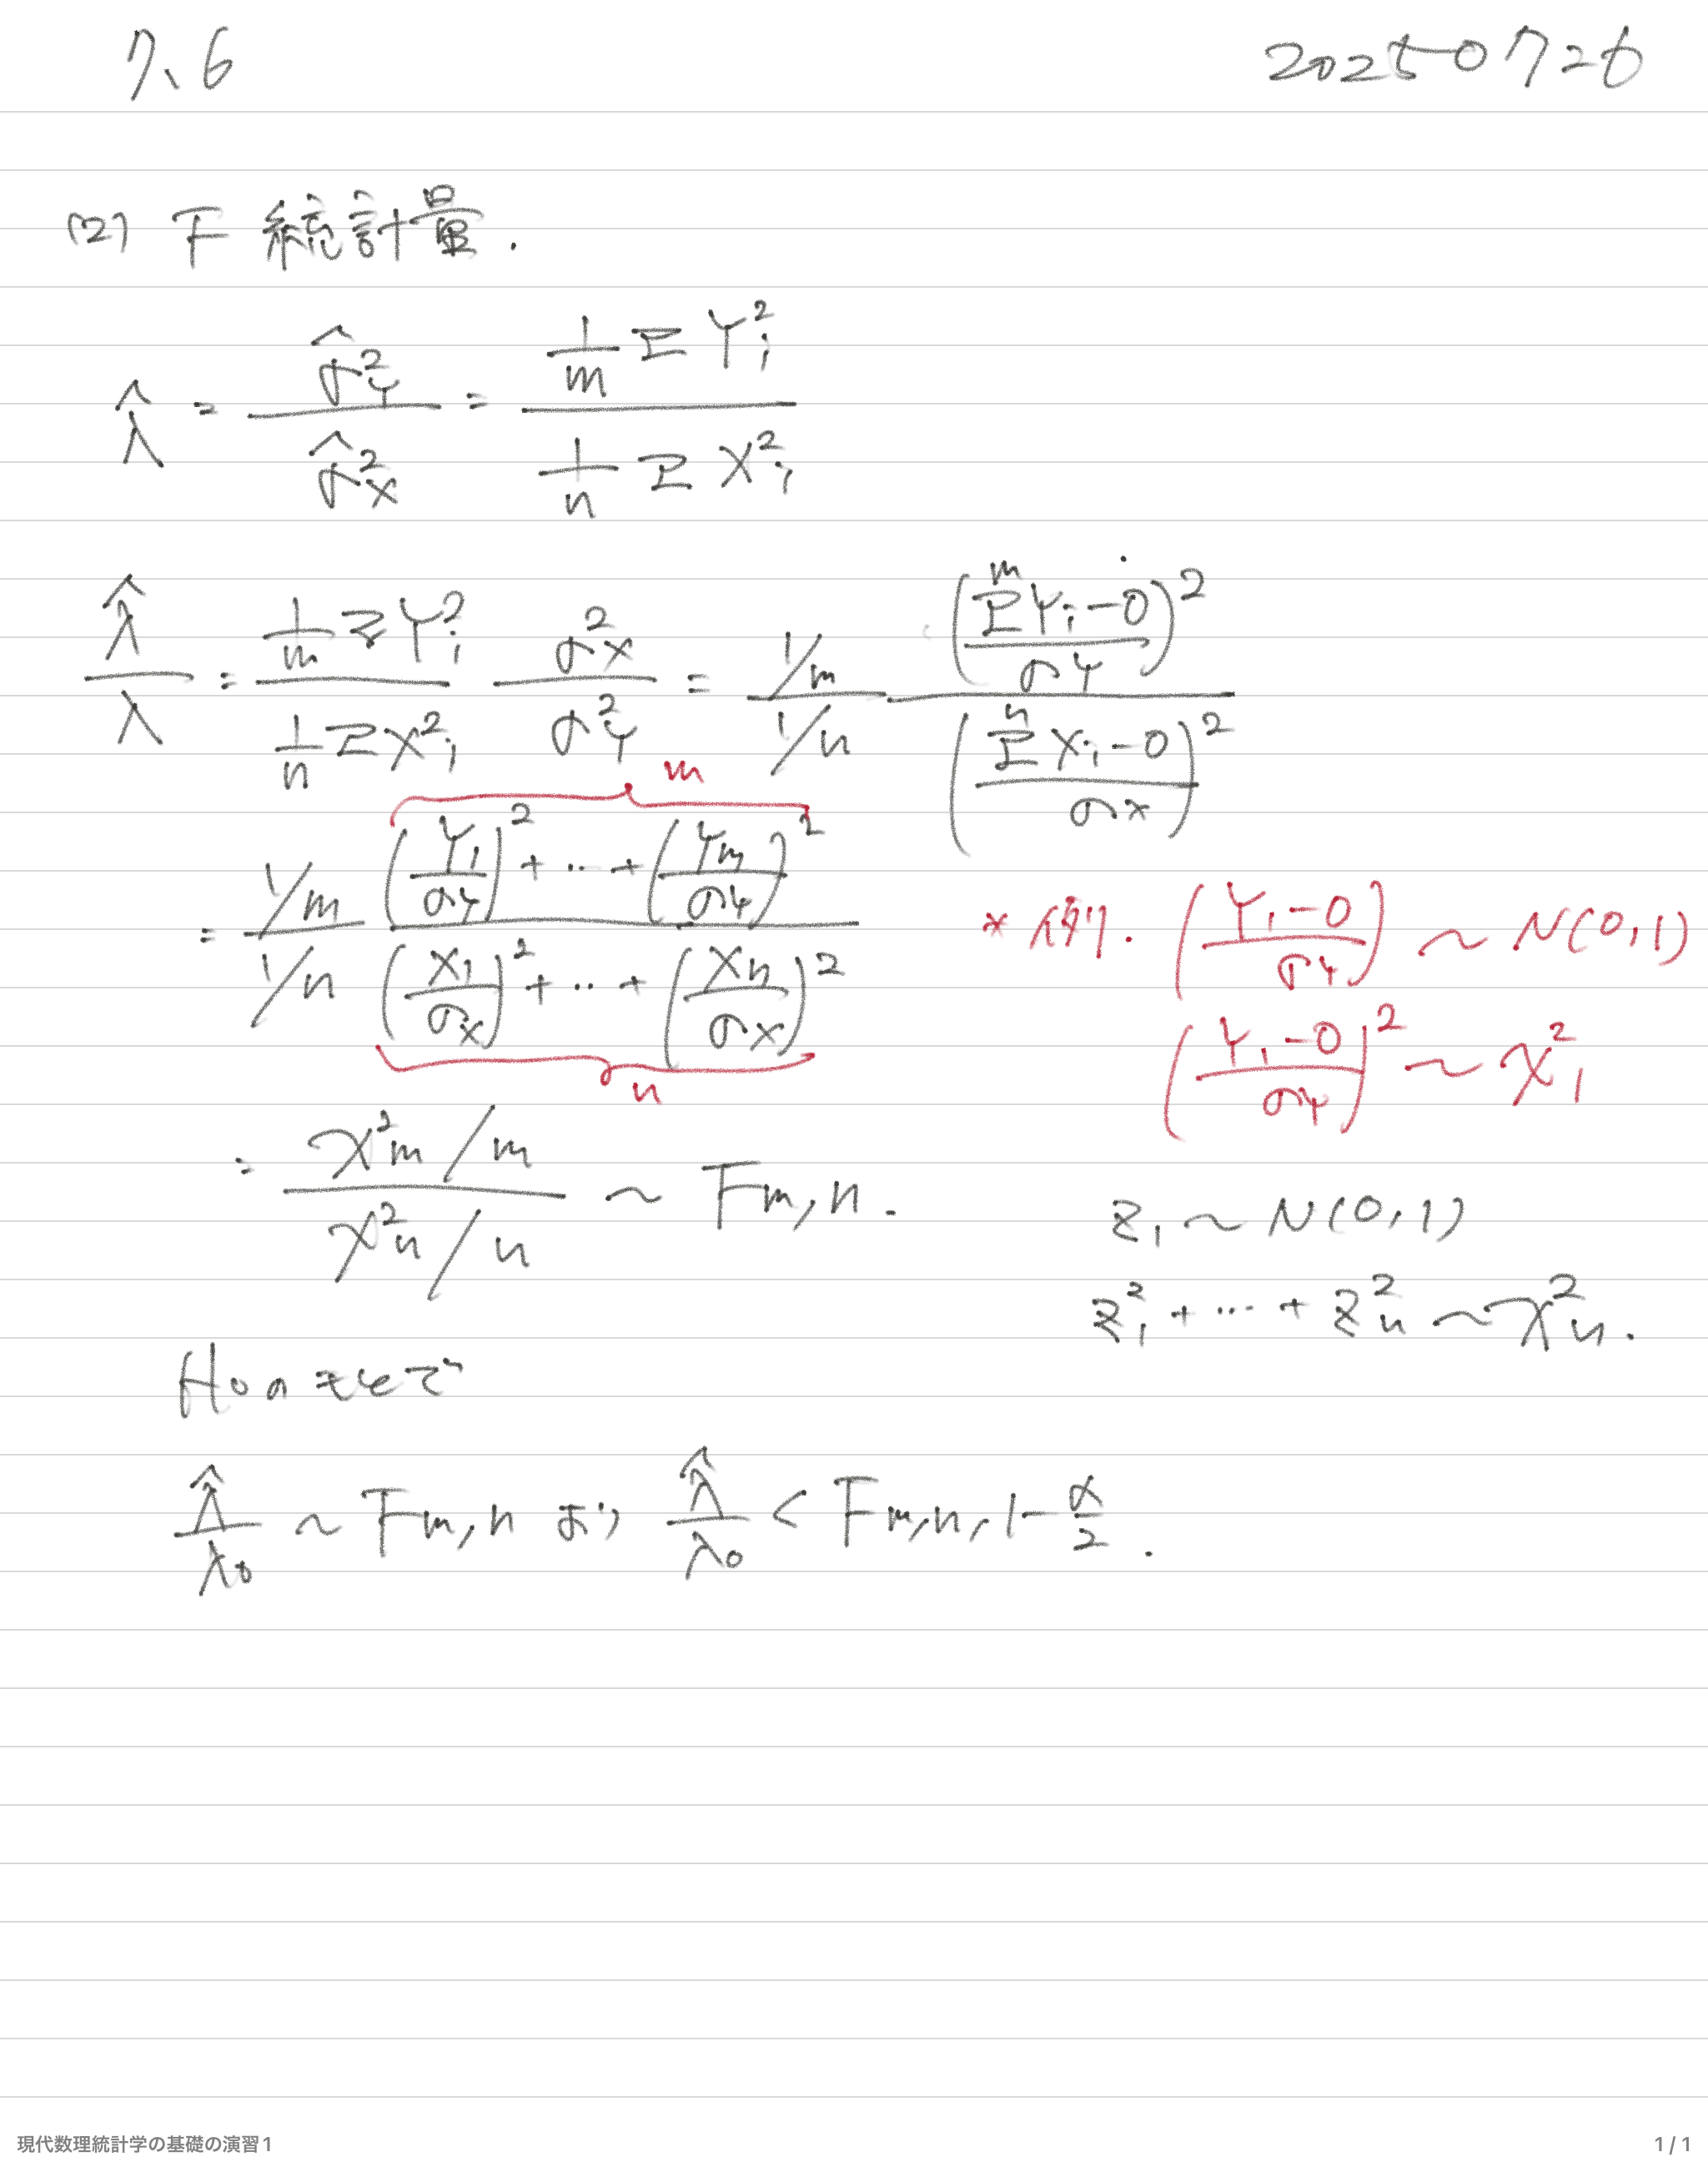 7、6 20250726
(2) F 統計量.
λ̂ = σ̂²_Y / σ̂²_X = (1/m Σ Y_i²) / (1/n Σ X_i²)
λ̂/λ = (1/m Σ Y_i²) / (1/n Σ X_i²) σ²_X / σ²_Y = (1/m) / (1/n) ((Σ^m Y_i - 0) / σ_Y)² / ((Σ^n X_i - 0) / σ_X)²
m
= (1/m) / (1/n) ((Y_1/σ_Y)² + ‥ + (Y_m/σ_Y)²) / ((X_1/σ_X)² + ‥ + (X_n/σ_X)²)
n
* 例. ((Y_1 - 0) / σ_Y) ~ N(0,1)
((Y_1 - 0) / σ_Y)² ~ χ²_1
= (χ²_m / m) / (χ²_n / n) ~ F_m,n.
Z_1 ~ N(0,1)
Z_1² + … + Z_n² ~ χ²_n.
H_0のもとで
λ̂/λ_0 ~ F_m,n より λ̂/λ_0 < F_m,n,1-α/2.
現代数理統計学の基礎の演習1 1 / 1